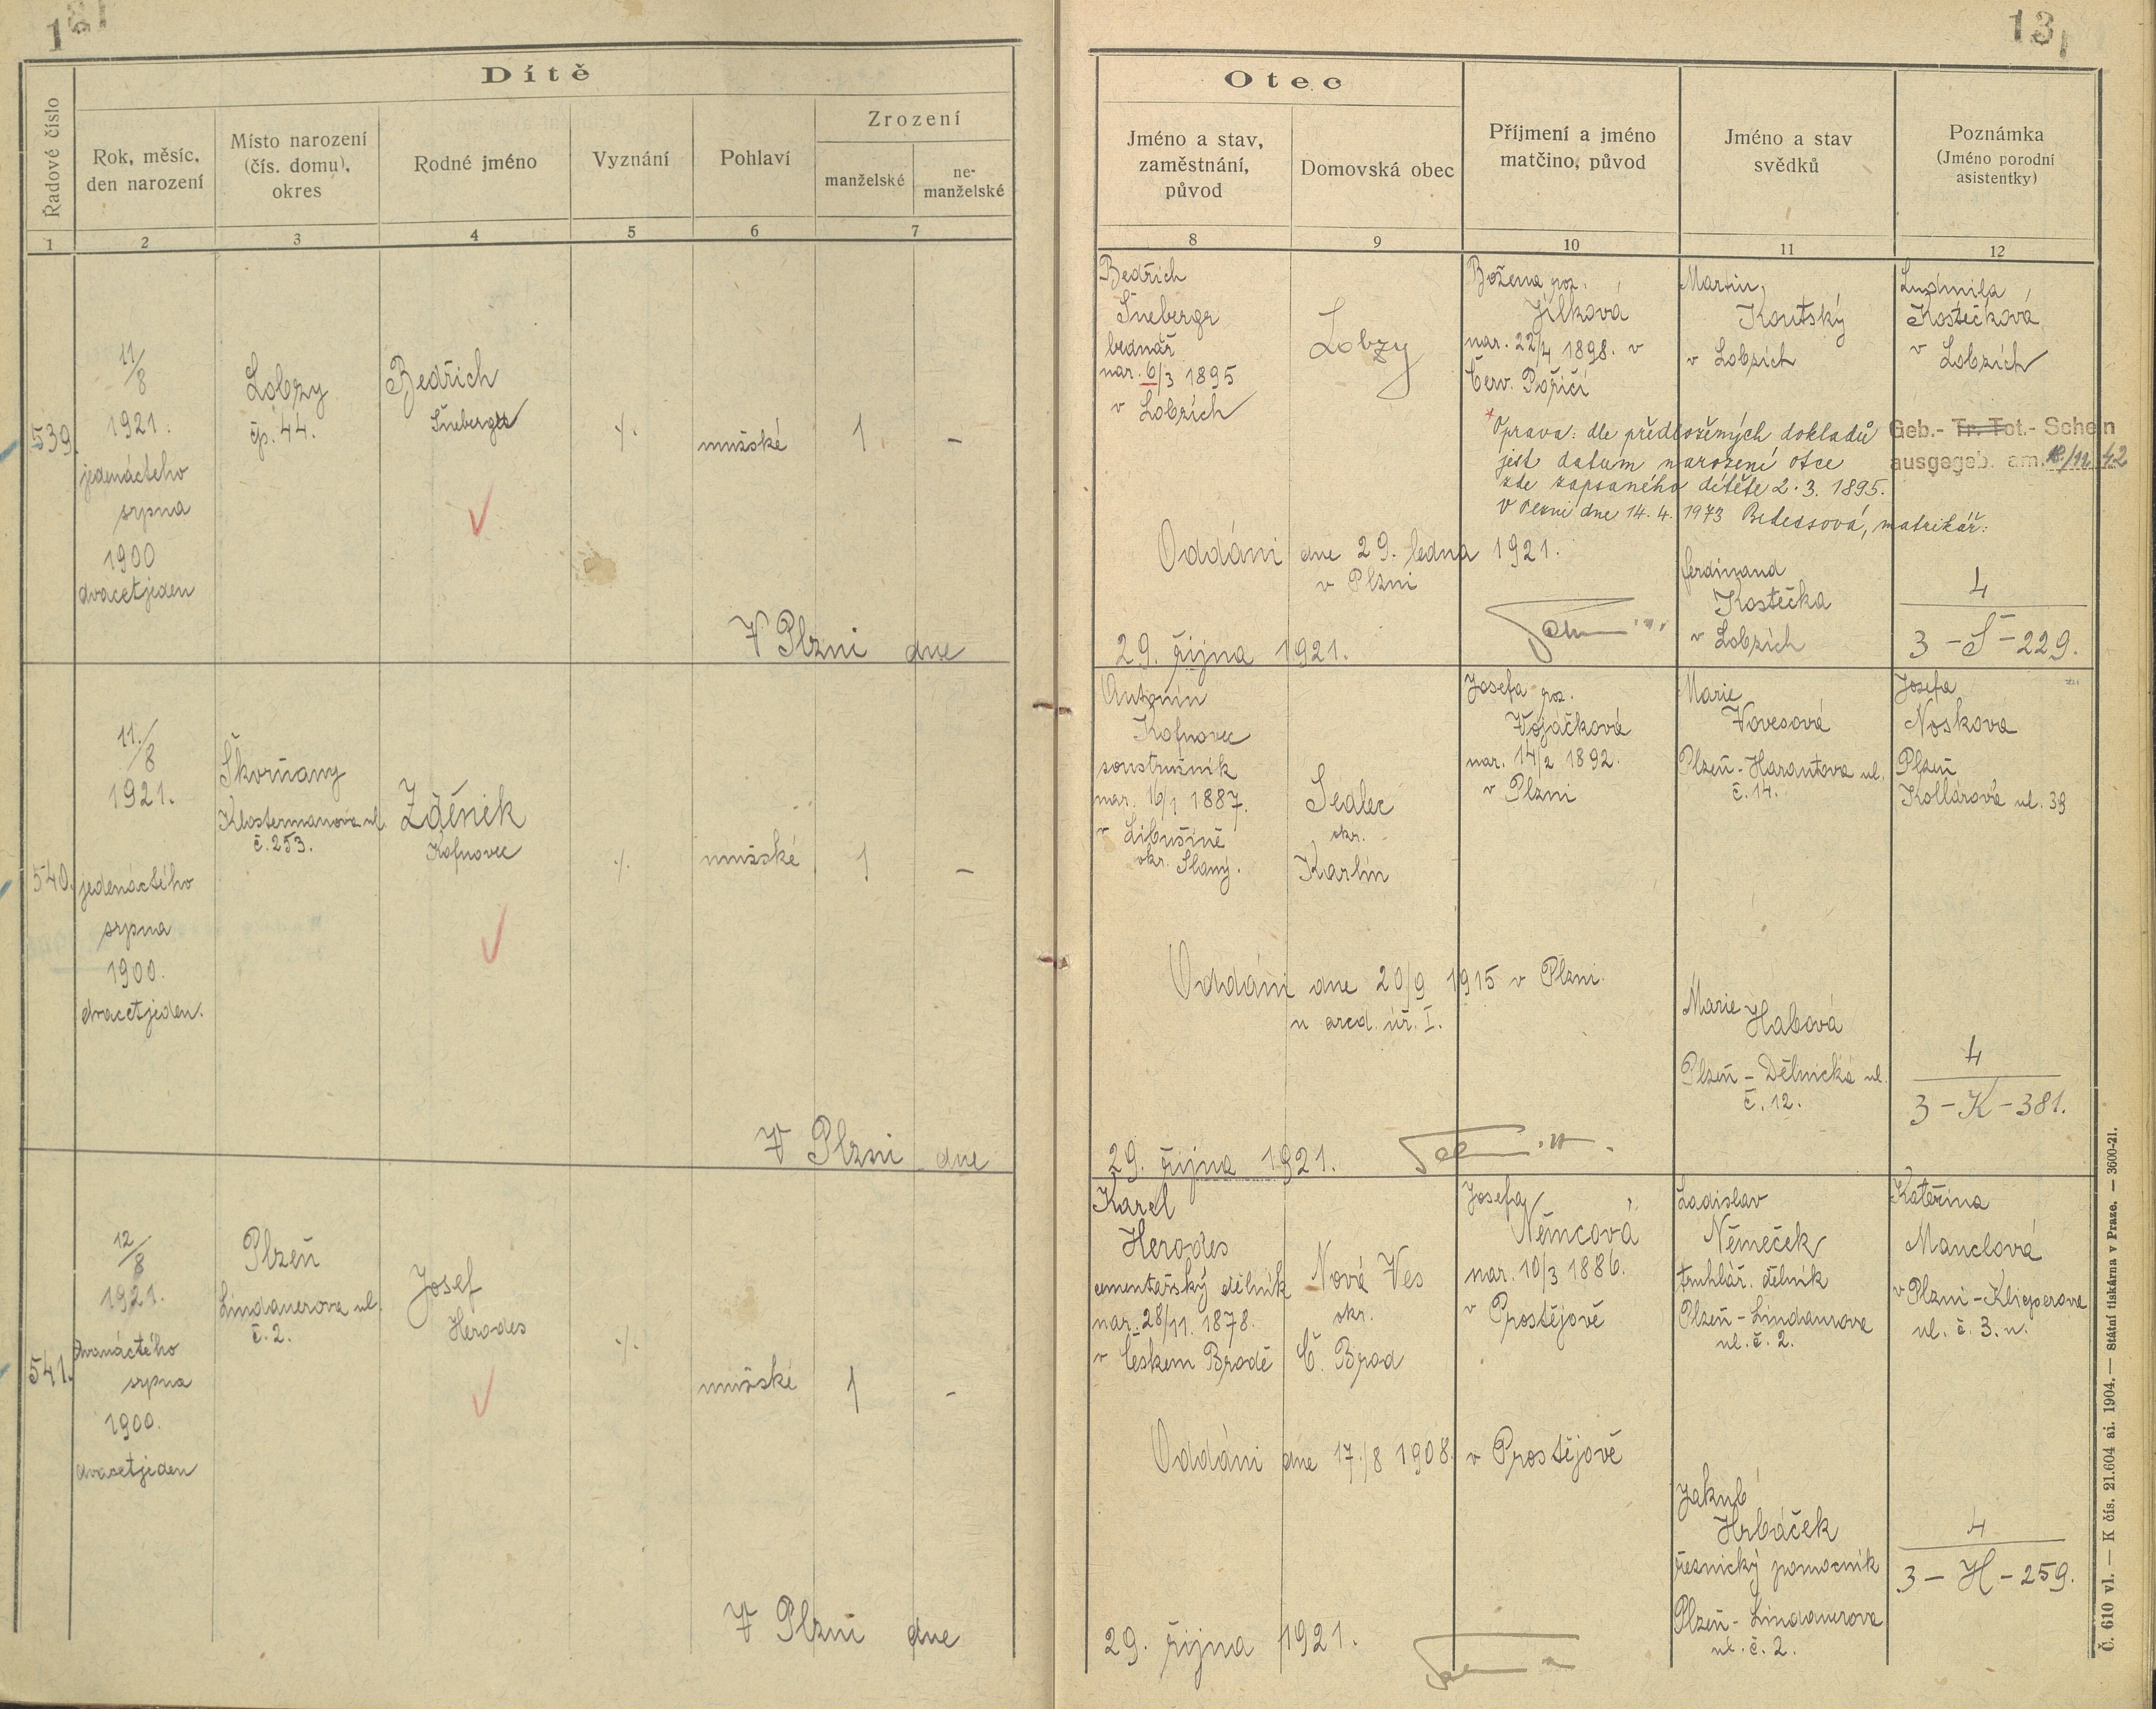 13
Dítě
Řadové číslo
Rok, měsíc,
den narození
Místo narození
(čís. domu),
okres
Rodné jméno
Vyznání
Pohlaví
Zrození
manželské
ne-
manželské
1
2
3
4
5
6
7
Otec
Jméno a stav,
zaměstnání,
původ
Domovská obec
Příjmení a jméno
matčino, původ
Jméno a stav
svědků
Poznámka
(Jméno porodní
asistentky)
8
9
10
11
12
539.
11/8
1921.
jedenáctého
srpna
1900
dvacetjeden
Lobzy
čp. 44.
Bedřich
Šneberger
·/.
mužské
1
–
V Plzni dne
Bedřich
Šneberger
bednář
nar. 6/3 1895
v Lobzích
Lobzy
Božena roz.
Jílková
nar. 22/4 1898. v
Červ. Poříčí
Martin
Koutský
v Lobzích
Ludmila
Kostečková
v Lobzích
*Oprava: dle předložených dokladů
jest datum narození otce
zde zapsaného dítěte 2. 3. 1895.
V Plzni dne 14. 4. 1973 matrikář:
Geb.- Tr. Tot.- Schein
ausgegeb. am. 42
Oddáni dne 29. ledna 1921.
v Plzni
Ferdinand
Kostečka
v Lobzích
4
3 – Š – 229.
29. října 1921.
540.
11./8
1921.
jedenáctého
srpna
1900.
dvacetjeden.
Škvrňany
Klostermanova ul.
č. 253.
Zděněk
Kofnovec
·/.
mužské
1
–
V Plzni dne
Antonín
Kofnovec
soustružník
nar. 16/1 1887.
v Libušíně
okr. Slaný.
Sedlec
okr.
Karlín
Josefa roz.
Vojáčková
nar. 14/2 1892.
v Plzni
Marie
Vovesová
Plzeň - Harantova ul.
č. 14.
Josefa
Nosková
Plzeň
Kollárova ul. 39
Oddáni dne 20/9 1915 v Plzni.
u arcd. úř. I.
Marie
Habová
Plzeň – Dělnická ul.
č. 12.
4
3 – K – 381.
29. října 1921.
541.
12/8
1921.
dvanáctého
srpna
1900.
dvacetjeden
Plzeň
Lindauerova ul.
č. 2.
Josef
Herodes
·/.
mužské
1
–
V Plzni dne
Karel
Herodes
cementářský dělník
nar. 28/11. 1878.
v Českem Brodě
Nová Ves
okr.
Č. Brod
Josefa
Němcová
nar. 10/3 1886.
v Prostějově
Ladislav
Němeček
truhlář. dělník
Plzeň - Lindaurova
ul. č. 2.
Kateřina
Manclová
v Plzni - Klicperova
ul. č. 3. n.
Oddáni dne 17./8 1908. v Prostějově
Jakub
Hrbáček
řeznický pomocník
Plzeň - Lindauerova
ul. č. 2.
4
3 – H – 259.
29. října 1921.
Č. 610 vl. — K čís. 21.604 ai. 1904. — státní tiskárna v Praze. — 3600-21.